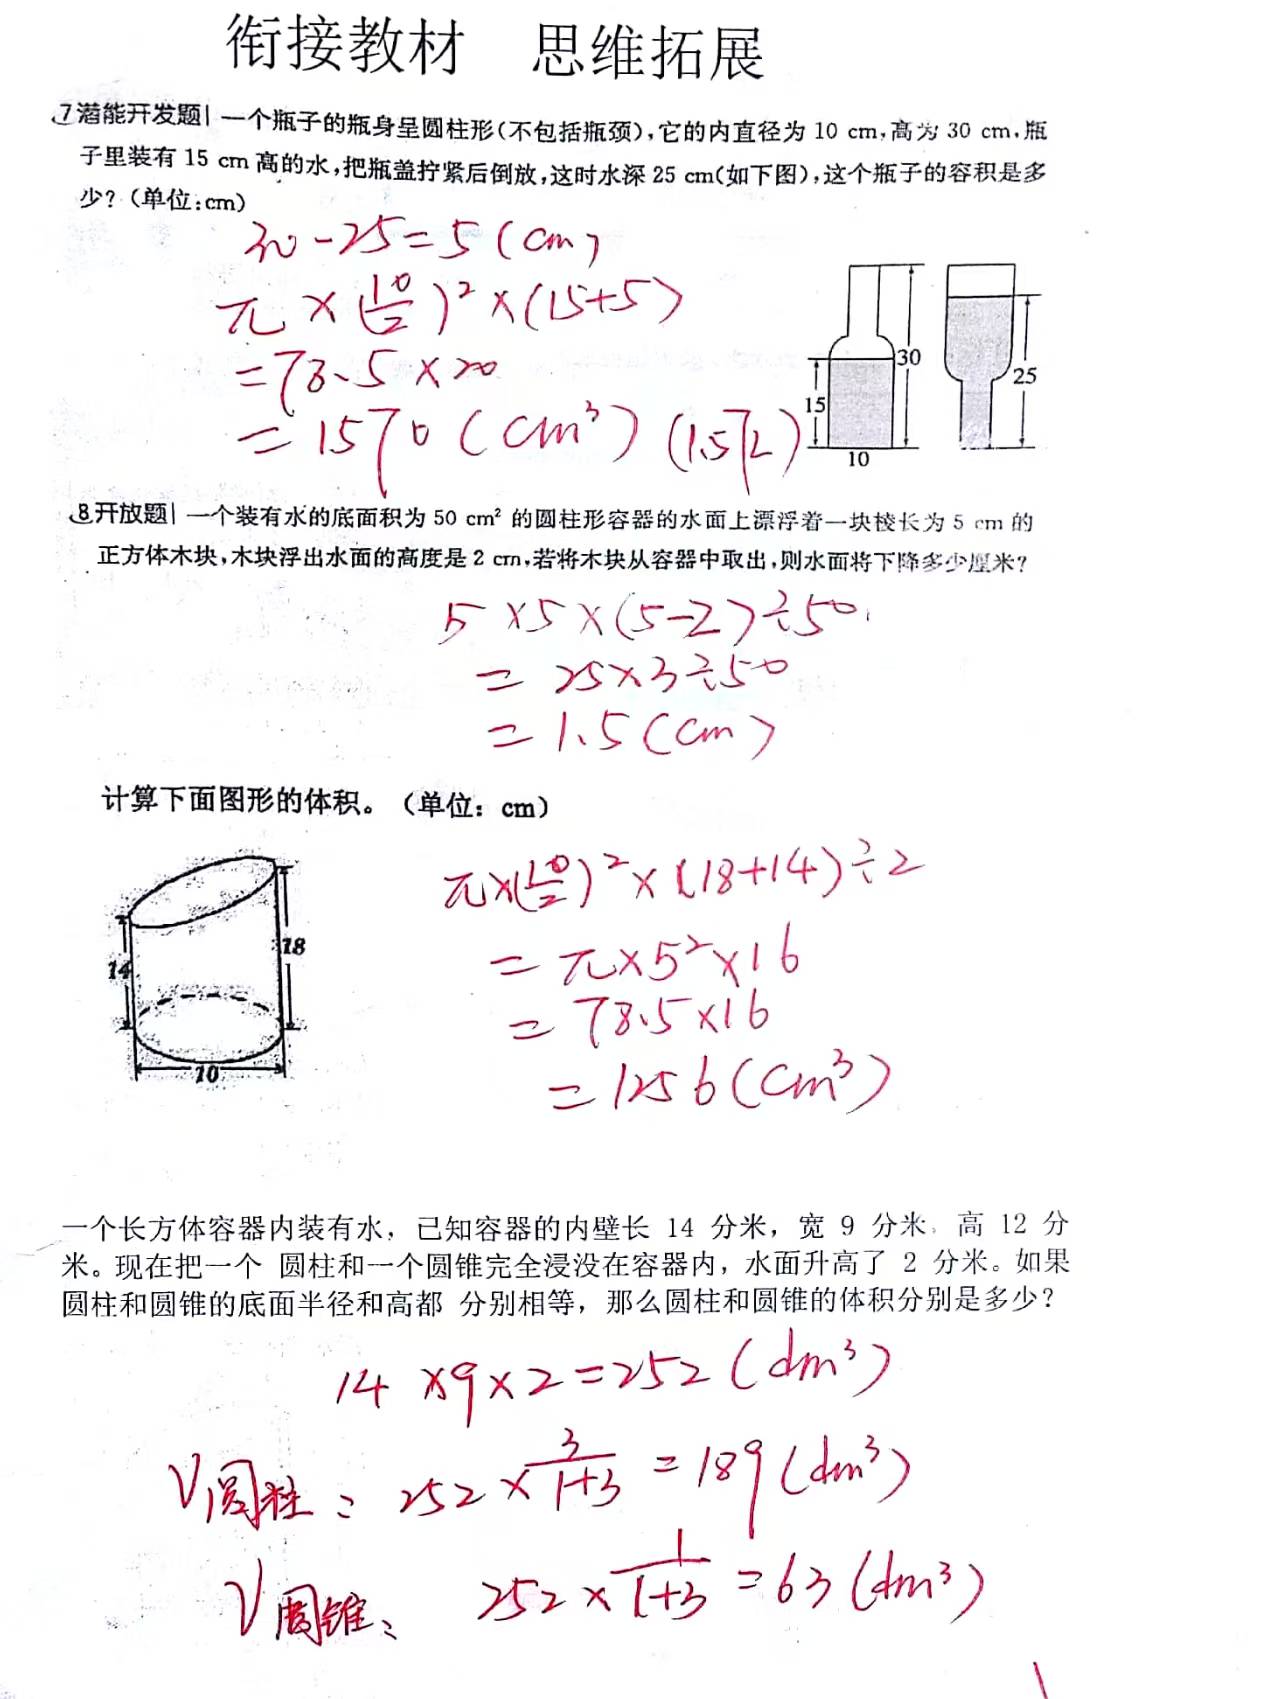 衔接教材 思维拓展
7潜能开发题| 一个瓶子的瓶身呈圆柱形(不包括瓶颈),它的内直径为 10 cm,高为 30 cm.瓶
子里装有 15 cm 高的水,把瓶盖拧紧后倒放,这时水深 25 cm(如下图),这个瓶子的容积是多
少?(单位:cm)
30-25=5(cm)
π×(10/2)²×(15+5)
=78.5×20
=1570(cm³) (1.57L)
30
15
10
25
8开放题| 一个装有水的底面积为 50 cm² 的圆柱形容器的水面上漂浮着一块棱长为 5 cm 的
正方体木块,木块浮出水面的高度是 2 cm,若将木块从容器中取出,则水面将下降多少厘米?
5×5×(5-2)÷50
=25×3÷50
=1.5(cm)
计算下面图形的体积。(单位:cm)
14
18
10
π×(10/2)²×(18+14)÷2
=π×5²×16
=78.5×16
=1256(cm³)
一个长方体容器内装有水，已知容器的内壁长 14 分米，宽 9 分米、高 12 分
米。现在把一个 圆柱和一个圆锥完全浸没在容器内，水面升高了 2 分米。如果
圆柱和圆锥的底面半径和高都 分别相等，那么圆柱和圆锥的体积分别是多少？
14×9×2=252(dm³)
V圆柱: 252×3/(1+3)=189(dm³)
V圆锥: 252×1/(1+3)=63(dm³)